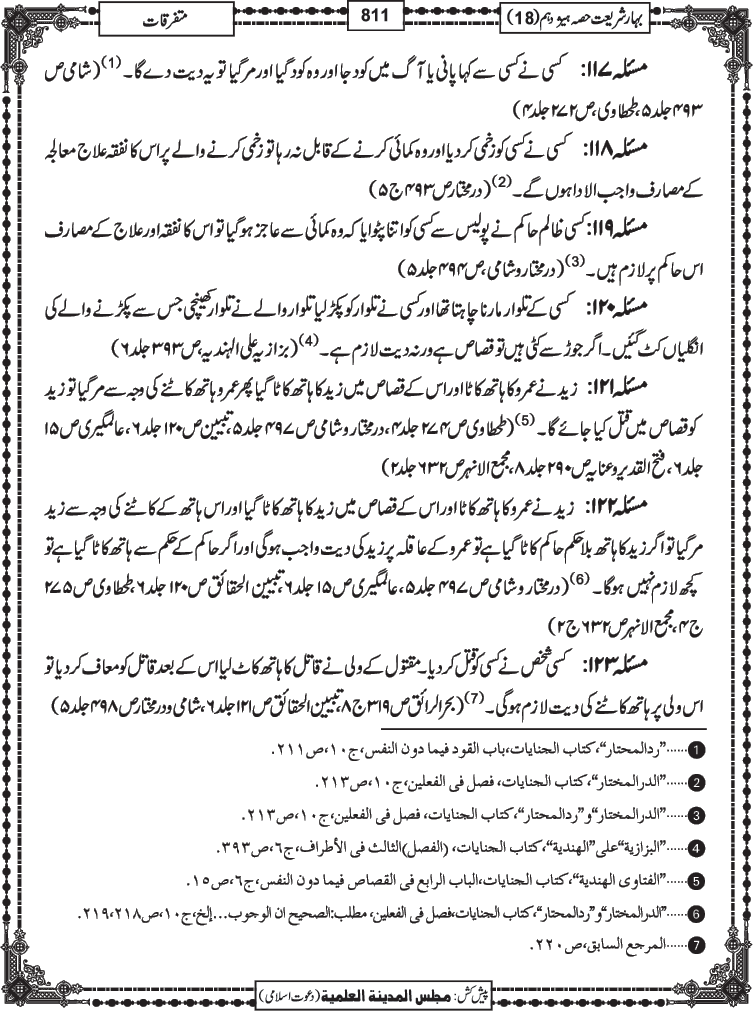 بہارِشریعت حصہ ہیژدہم (18)
811
متفرقات
مسئلہ ۱۱۷: کسی نے کسی سے کہا پانی یا آگ میں کود جا اور وہ کود گیا اور مر گیا تو یہ دیت دے گا۔(1) (شامی ص
۴۹۳ جلد ۵، طحطاوی، ص ۲۷۲ جلد ۴)
مسئلہ ۱۱۸: کسی نے کسی کو زخمی کر دیا اور وہ کمائی کرنے کے قابل نہ رہا تو زخمی کرنے والے پر اس کا نفقہ علاج معالجہ
کے مصارف واجب الادا ہوں گے۔(2) (درمختار ص ۴۹۳ ج ۵)
مسئلہ ۱۱۹: کسی ظالم حاکم نے پولیس سے کسی کو اتنا پٹوایا کہ وہ کمائی سے عاجز ہو گیا تو اس کا نفقہ اور علاج کے مصارف
اس حاکم پر لازم ہیں۔(3) (درمختار و شامی، ص ۴۹۴ جلد ۵)
مسئلہ ۱۲۰: کسی کے تلوار مارنا چاہتا تھا اور کسی نے تلوار کو پکڑ لیا تلوار والے نے تلوار کھینچی جس سے پکڑنے والے کی
انگلیاں کٹ گئیں۔ اگر جوڑ سے کٹی ہیں تو قصاص ہے ورنہ دیت لازم ہے۔(4) (بزازیہ علی الہندیہ، ص ۳۹۳ جلد ۶)
مسئلہ ۱۲۱: زید نے عمرو کا ہاتھ کاٹا اور اس کے قصاص میں زید کا ہاتھ کاٹا گیا پھر عمرو ہاتھ کاٹنے کی وجہ سے مر گیا تو زید
کو قصاص میں قتل کیا جائے گا۔(5) (طحطاوی ص ۲۷۴ جلد ۴، درمختار و شامی ص ۴۹۷ جلد ۵، تبیین ص ۱۲۰ جلد ۶، عالمگیری ص ۱۵
جلد ۶، فتح القدیر و عنایہ ص ۲۹۰ جلد ۸، مجمع الانہر ص ۶۳۲ جلد ۲)
مسئلہ ۱۲۲: زید نے عمرو کا ہاتھ کاٹا اور اس کے قصاص میں زید کا ہاتھ کاٹا گیا اور اس ہاتھ کے کاٹنے کی وجہ سے زید
مر گیا تو اگر زید کا ہاتھ بلا حکم حاکم کاٹا گیا ہے تو عمرو کے عاقلہ پر زید کی دیت واجب ہو گی اور اگر حاکم کے حکم سے ہاتھ کاٹا گیا ہے تو
کچھ لازم نہیں ہوگا۔(6) (درمختار و شامی ص ۴۹۷ جلد ۵، عالمگیری ص ۱۵ جلد ۶، تبیین الحقائق ص ۱۲۰ جلد ۶، طحطاوی ص ۲۷۵
ج ۴، مجمع الانہر ص ۶۳۲ ج ۲)
مسئلہ ۱۲۳: کسی شخص نے کسی کو قتل کر دیا۔ مقتول کے ولی نے قاتل کا ہاتھ کاٹ لیا اس کے بعد قاتل کو معاف کر دیا تو
اس ولی پر ہاتھ کاٹنے کی دیت لازم ہوگی۔(7) (بحرالرائق ص ۳۱۹ ج ۸، تبیین الحقائق ص ۱۲۱ جلد ۶، شامی و درمختار ص ۴۹۸ جلد ۵)
1 ......"ردالمحتار"، کتاب الجنایات، باب القود فیما دون النفس، ج۱۰، ص۲۱۱.
2 ......"الدرالمختار"، کتاب الجنایات، فصل فی الفعلین، ج۱۰، ص۲۱۳.
3 ......"الدرالمختار" و "ردالمحتار"، کتاب الجنایات، فصل فی الفعلین، ج۱۰، ص۲۱۳.
4 ......"البزازیة" علی "الهندیة"، کتاب الجنایات، (الفصل) الثالث فی الأطراف، ج۶، ص۳۹۳.
5 ......"الفتاوی الهندیة"، کتاب الجنایات، الباب الرابع فی القصاص فیما دون النفس، ج۶، ص۱۵.
6 ......"الدرالمختار" و "ردالمحتار"، کتاب الجنایات، فصل فی الفعلین، مطلب: الصحیح ان الوجوب...إلخ، ج۱۰، ص۲۱۸، ۲۱۹.
7 ......المرجع السابق، ص۲۲۰.
پیش کش: مجلس المدینة العلمیة (دعوت اسلامی)